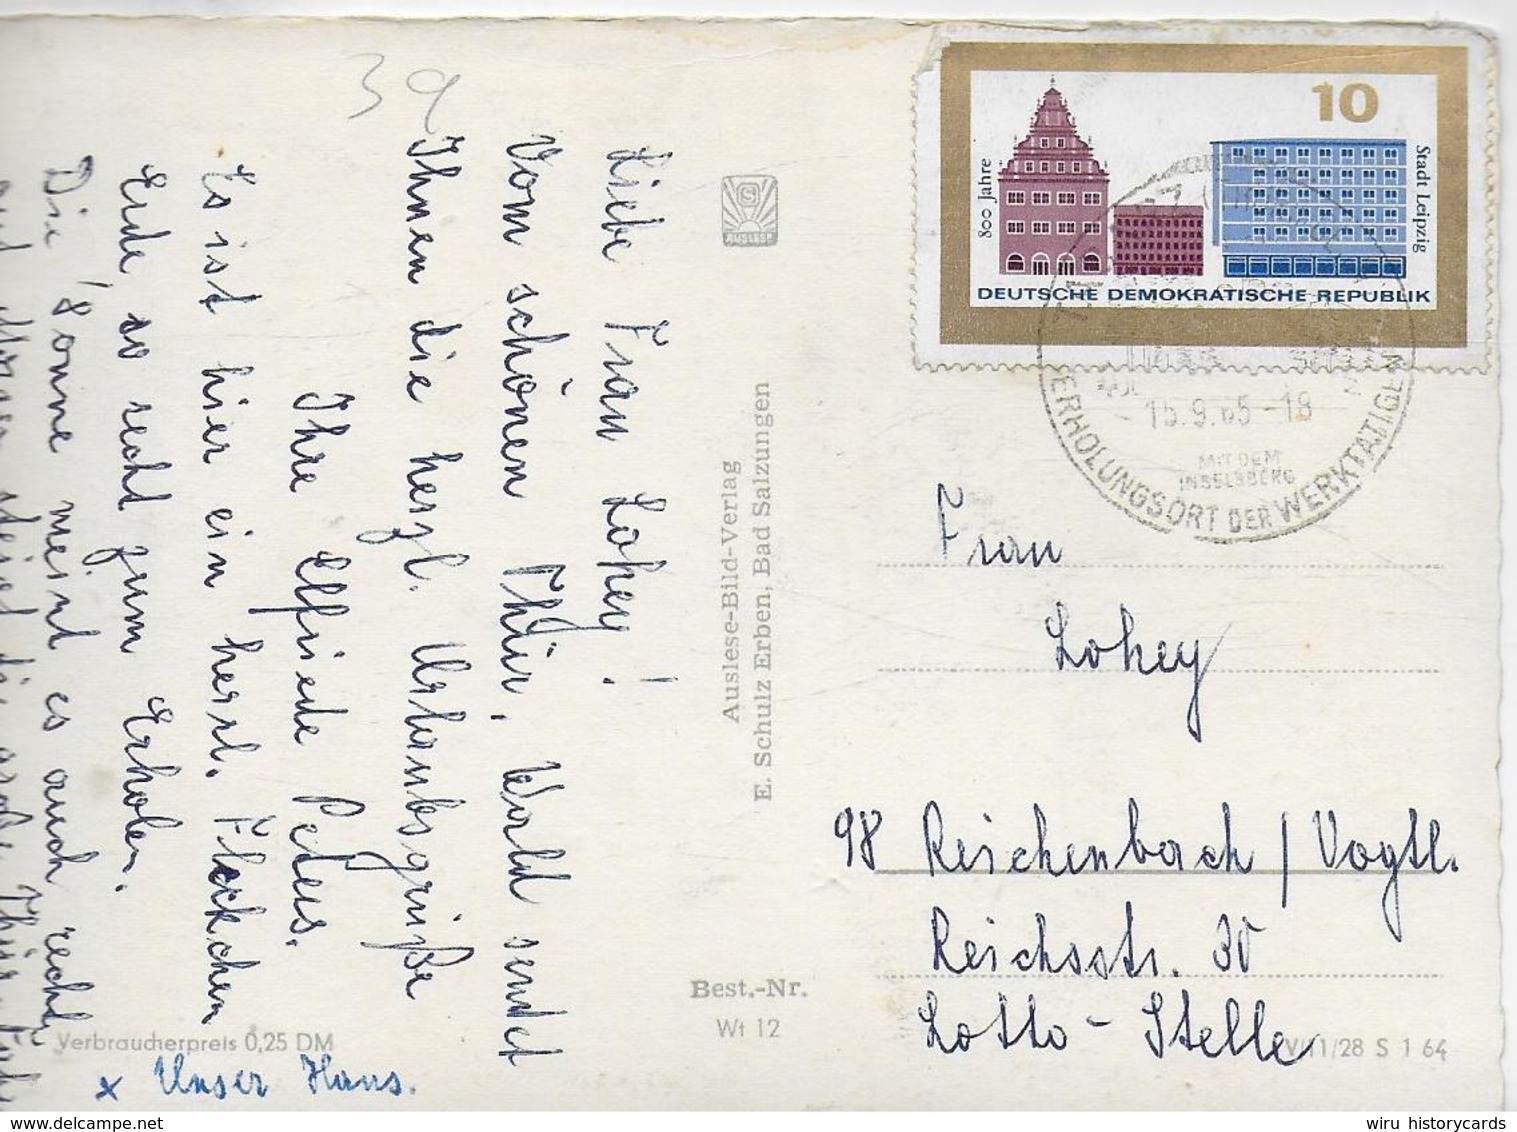 3a
Liebe Frau Lohey!
Vom schönen Thür. Wald sendet
Ihnen die herzl. Urlaubsgrüße
Ihre Elfriede Peters.
Es ist hier ein herrl. Fleckchen
Erde, so recht zum Erholen.
Die Sonne meint es auch recht
x Unser Haus.
Verbraucherpreis 0,25 DM
AUSLESE
Auslese-Bild-Verlag
E. Schulz Erben, Bad Salzungen
Best.-Nr.
Wt 12
10
800 Jahre
Stadt Leipzig
DEUTSCHE DEMOKRATISCHE REPUBLIK
15.9.65-18
MIT DEM
INSELSBERG
ERHOLUNGSORT DER WERKTÄTIGEN
Frau
Lohey
98 Reichenbach / Vogtl.
Reichsstr. 30
Lotto-Stelle
V/11/28 S 1 64
wiru historycards